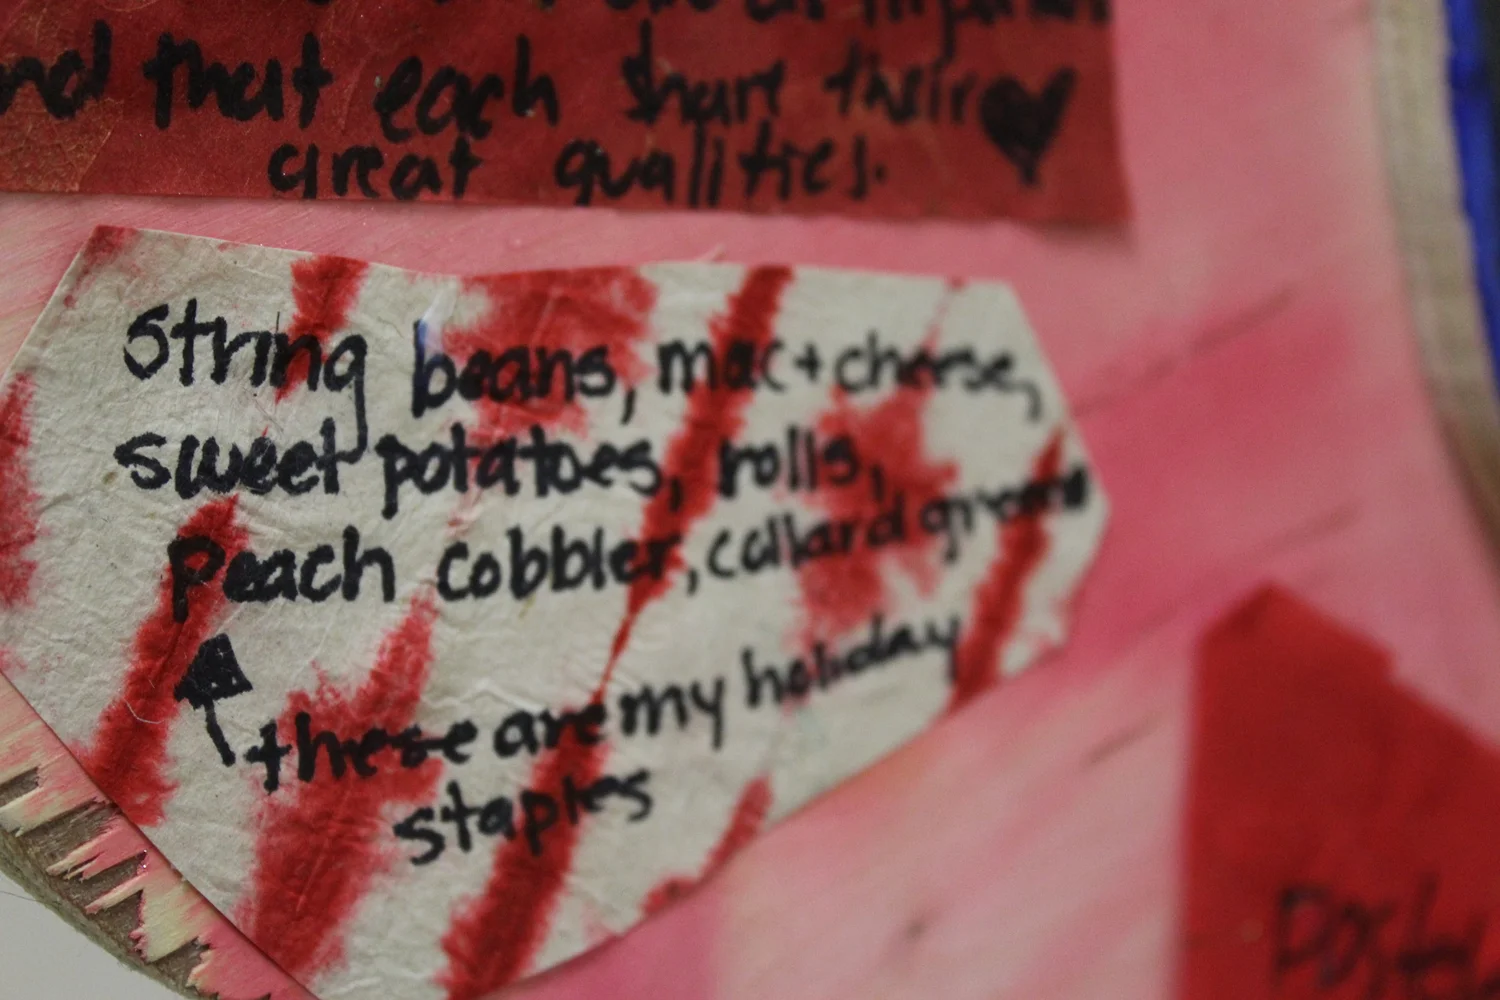 and that each share their
great qualities.
String beans, mac + cheese,
sweet potatoes, rolls,
peach cobbler, collard greens
these are my holiday
staples